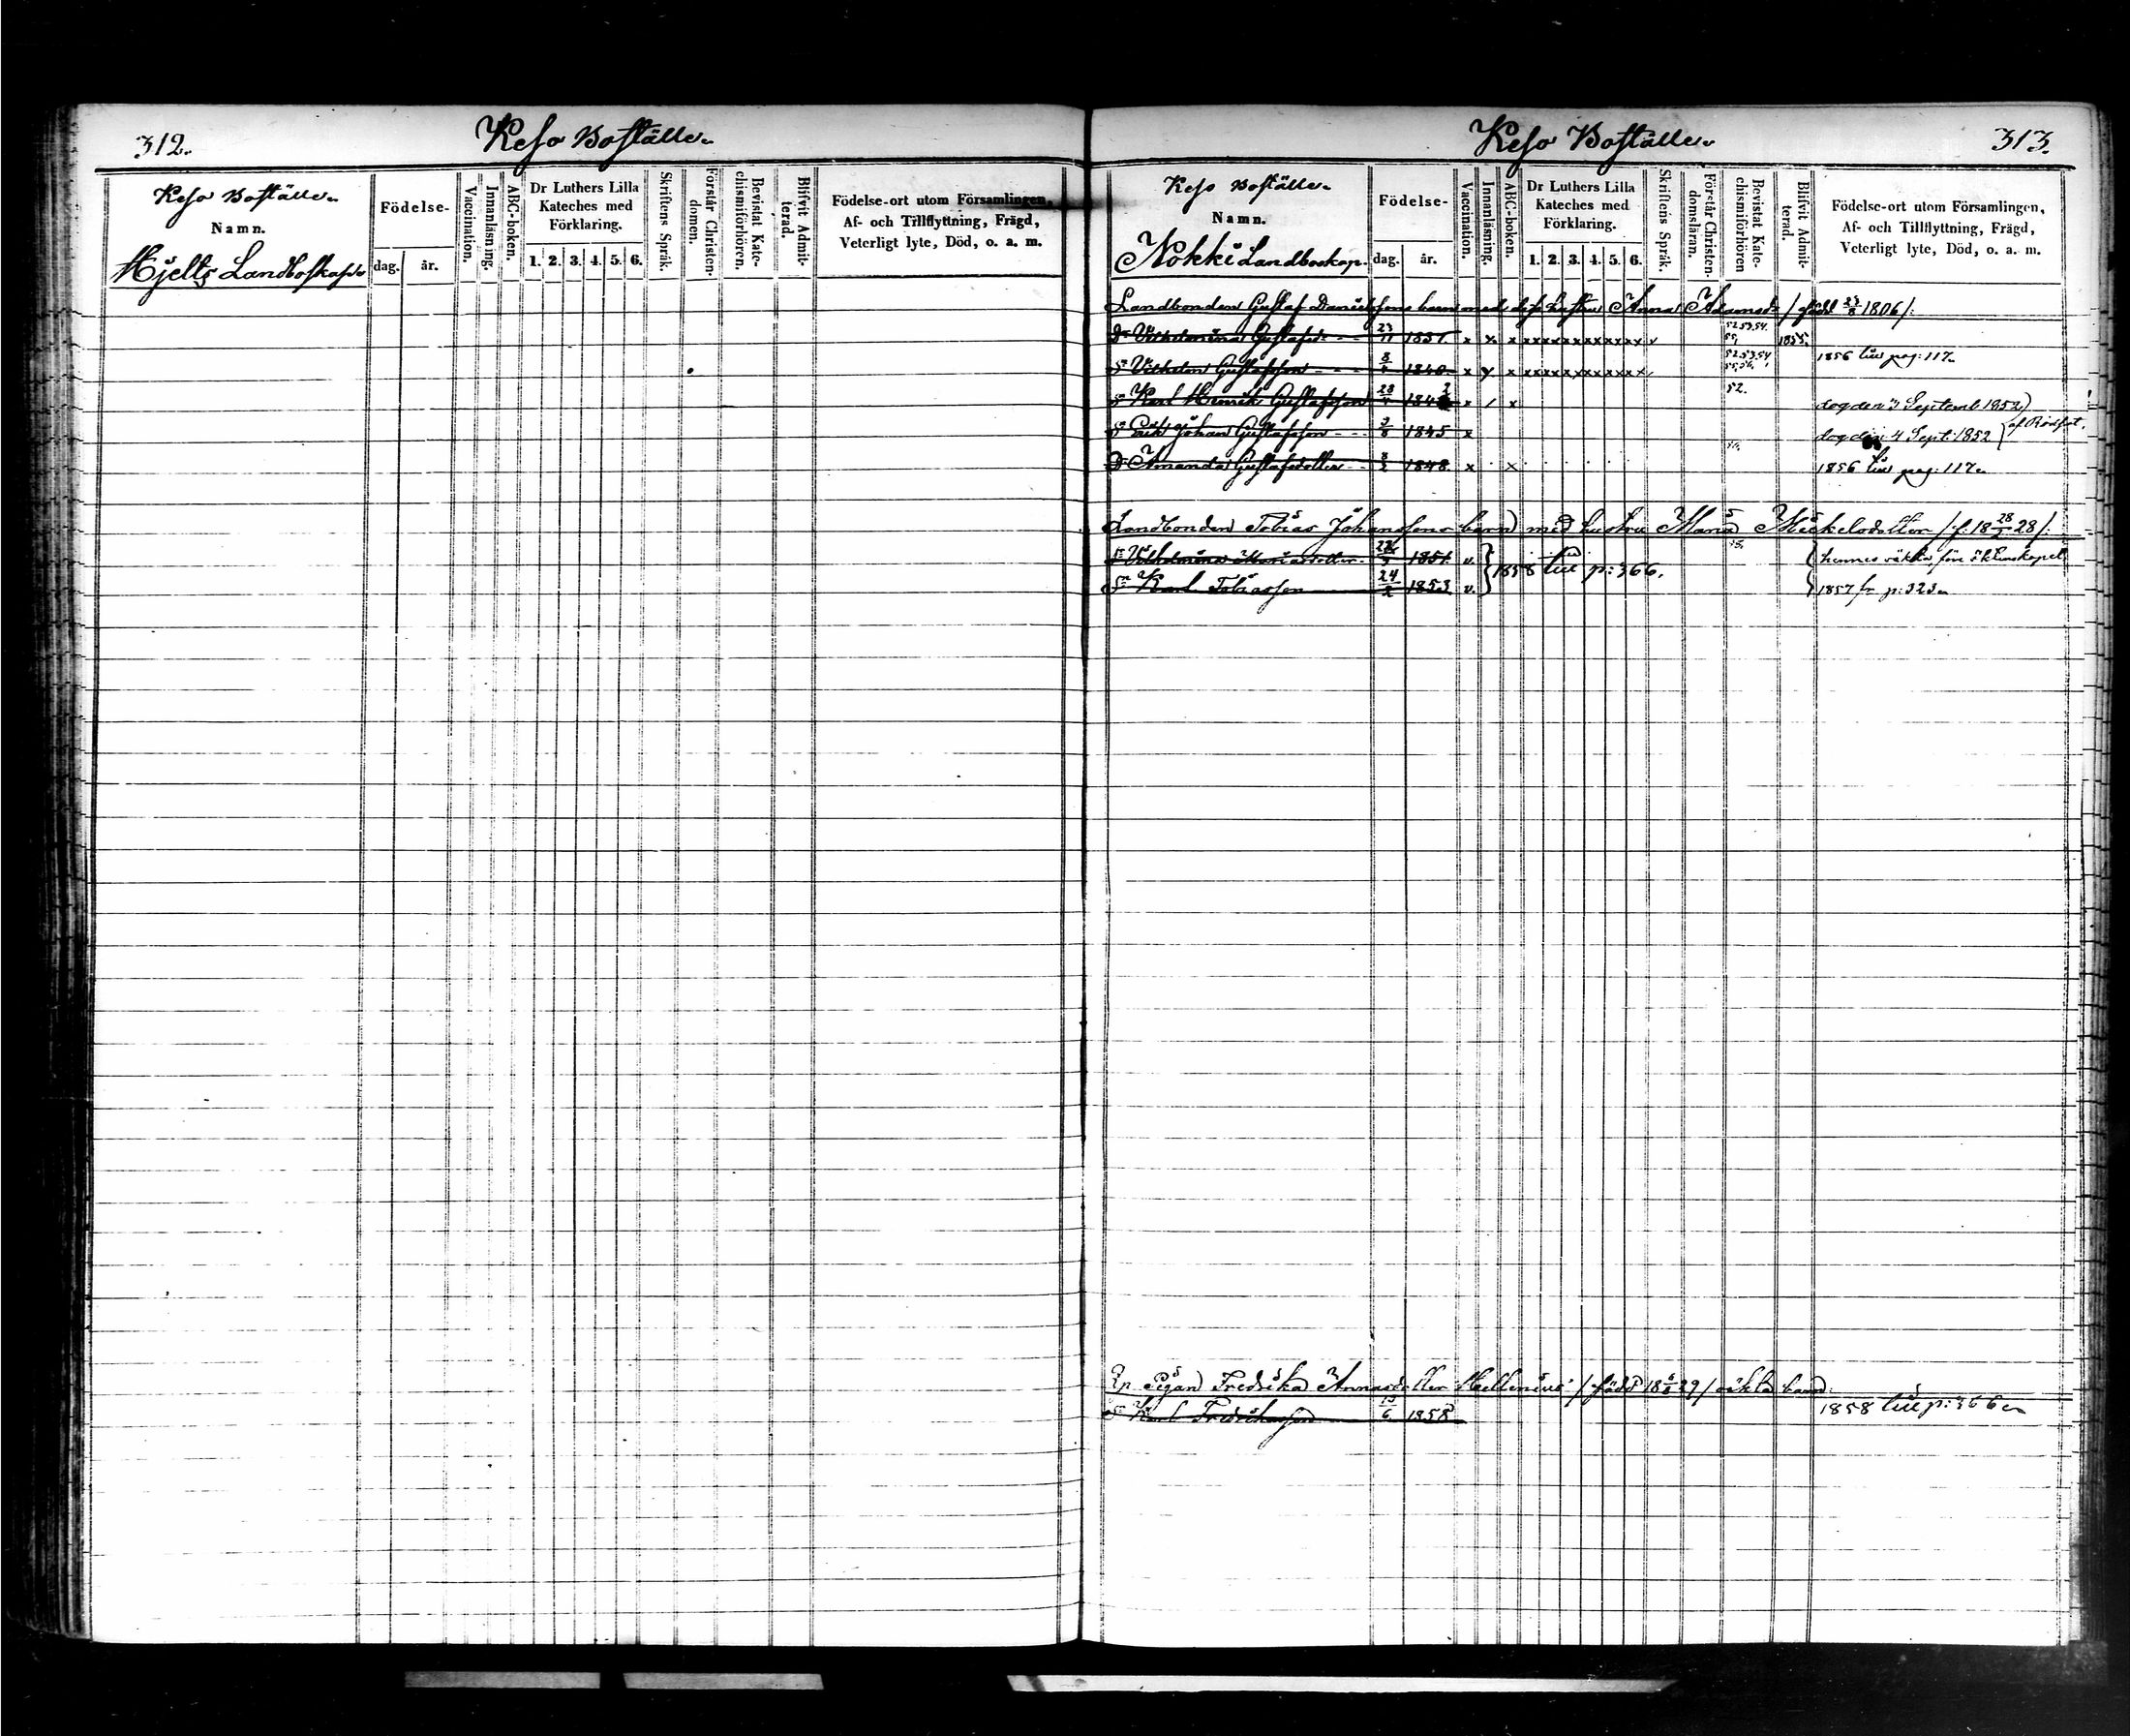 312.
Keso Boställe.
Keso Boställe.
Namn.
Hjelts Landboskap.
Födelse-
dag. år.
Vaccination.
Innanläsning.
ABC-boken.
Dr Luthers Lilla
Kateches med
Förklaring.
1. 2. 3. 4. 5. 6.
Skriftens Språk.
Förstår Christen-
domen.
Bevistat Kate-
chismiförhören.
Blifvit Admit-
terad.
Födelse-ort utom Församlingen,
Af- och Tillflyttning, Frägd,
Veterligt lyte, Död, o. a. m.
Keso Boställe.
313.
Keso Boställe.
Namn.
Nokki Landboskap.
Födelse-
dag. år.
Vaccination.
Innanläsning.
ABC-boken.
Dr Luthers Lilla
Kateches med
Förklaring.
1. 2. 3. 4. 5. 6.
Skriftens Språk.
Förstår Christen-
domsläran.
Bevistat Kate-
chismiförhören
Blifvit Admit-
terad.
Födelse-ort utom Församlingen,
Af- och Tillflyttning, Frägd,
Veterligt lyte, Död, o. a. m.
Landbonden Gustaf Danielssons barn med dess hustru Anna Adamsd. /född 1806/:
Dr Vilhelmina Gustafsd. 23/11 1837. x x x xxxxxxxxxxxx 52.53.54. 55. 1855.
Sn Vilhelm Gustafsson 1840. x x x xxxxxxxxxxxx 52.53.54 55.56. 1856 till pag: 117.
Sn Karl Henrik Gustafsson x / x 52. dog den 3 Septemb 1852
Sn Erik Johan Gustafsson 1845 x dog den 4 Sept. 1852 af Rödsot.
Dr Amanda Gustafsdotter 1848. x x 1856 till pag: 117.
Landbonden Tobias Johanssons barn med hustru Maria Mickelsdotter /:f: 18 28/2 28/:
Dr Vilhelmina Mariasdotter 1851. v. hennes oäkta, före äktenskapet
1858 till p: 366.
Sn Karl Tobiasson 24/2 1853 v. 1857 fr p: 323.
Pigan Fredrika Annasdotter Hellenius /född 18 29/ oäkta barn.
Sn Karl Fredrikasson 1858 1858 till p: 366.